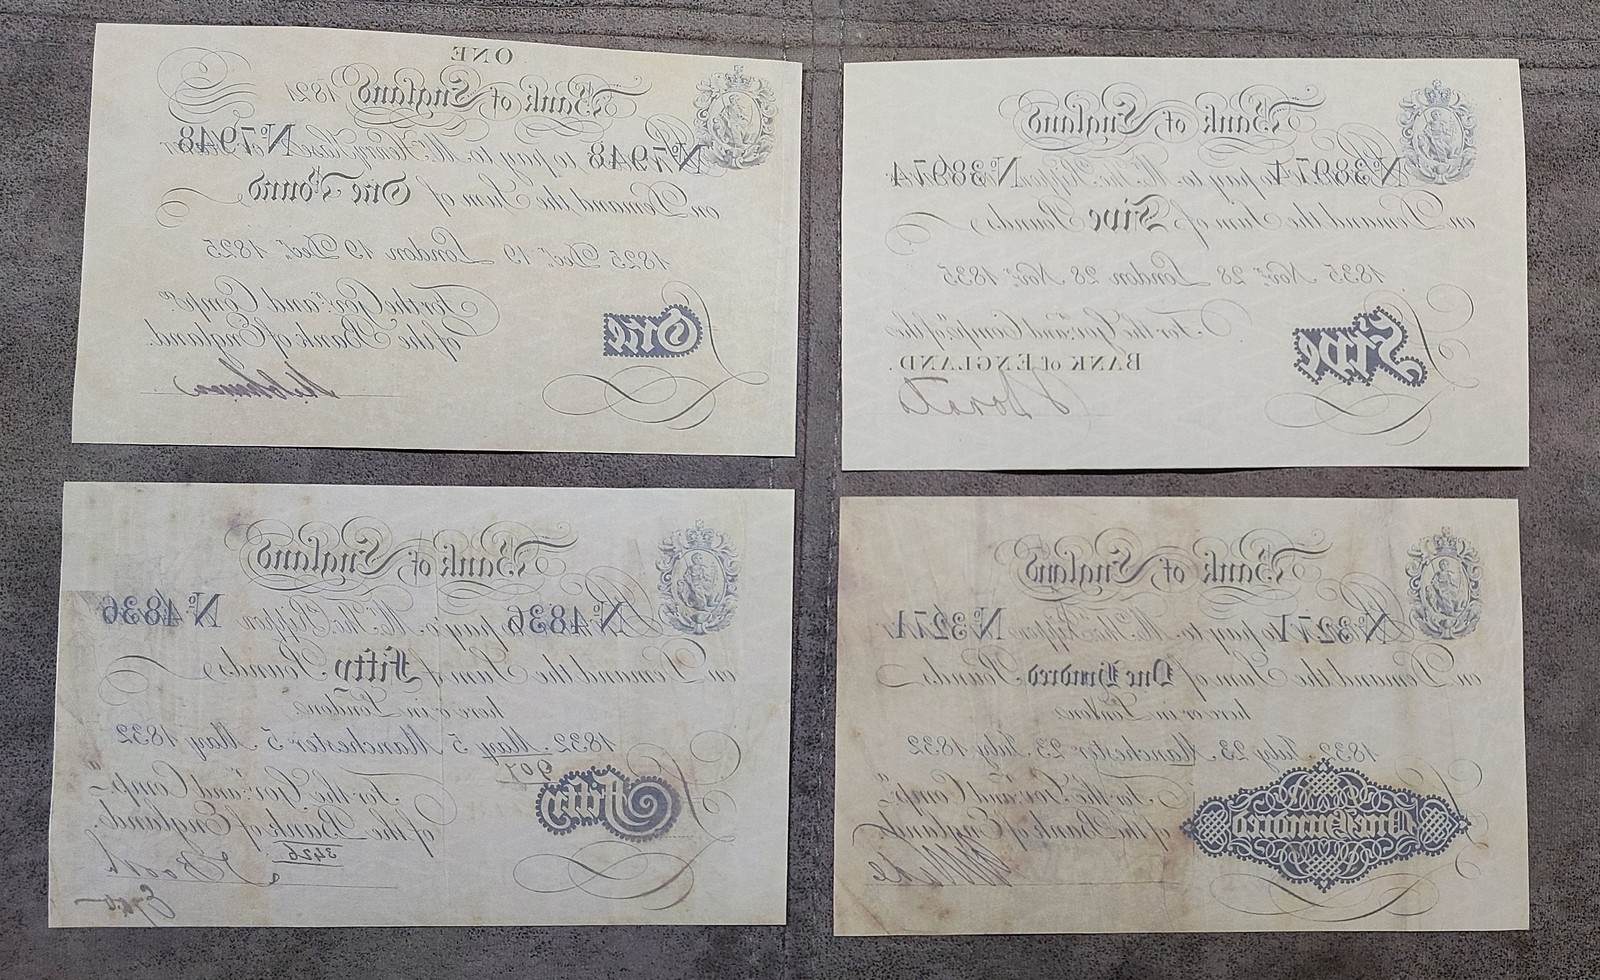 ONE
Bank of England 1821
No. 7948 to pay to Mr. Henry Hase No. 7948
on Demand the Sum of One Pound
1825 Decr. 19 London 19 Decr. 1825
For the Govr. and Compa.
of the Bank of England.
One
Bank of England
No. 38974 to pay to Mr. Tho. Rippon No. 38974
on Demand the Sum of Five Pounds
1835 Novr. 28 London 28 Novr. 1835
For the Govr. and Compa. of the
BANK of ENGLAND.
Five
Bank of England
No. 4836 pay to Mr. Tho. Rippon No. 4836
on Demand the Sum of Fifty Pounds
here or in London
1832. May 5 Manchester 5 May 1832
907
For the Govr. and Compa.
of the Bank of England.
Fifty
3426
J Booth
Bank of England
No. 3271 to pay to Mr. Tho. Rippon No. 3271
on Demand the Sum of One Hundred Pounds
here or in London
1832 July 23. Manchester 23. July 1832
For the Govr. and Compa.
of the Bank of England.
One Hundred